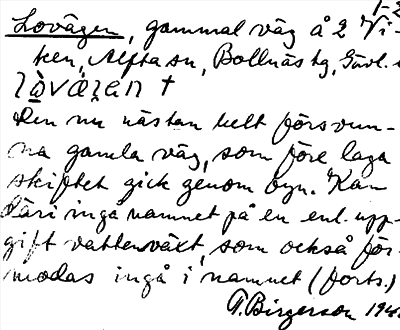 1-2
Lovägen, gammal väg å 2 Vi-
ken, Alfta sn, Bollnäs tg, Gävl.
Den nu nästan helt försvun-
na gamla väg, som före laga
skiftet gick genom byn. Kan
däri ingå namnet på en enl. upp-
gift vattenväxt, som också för-
modas ingå i namnet (forts.)
G. Birgerson 194